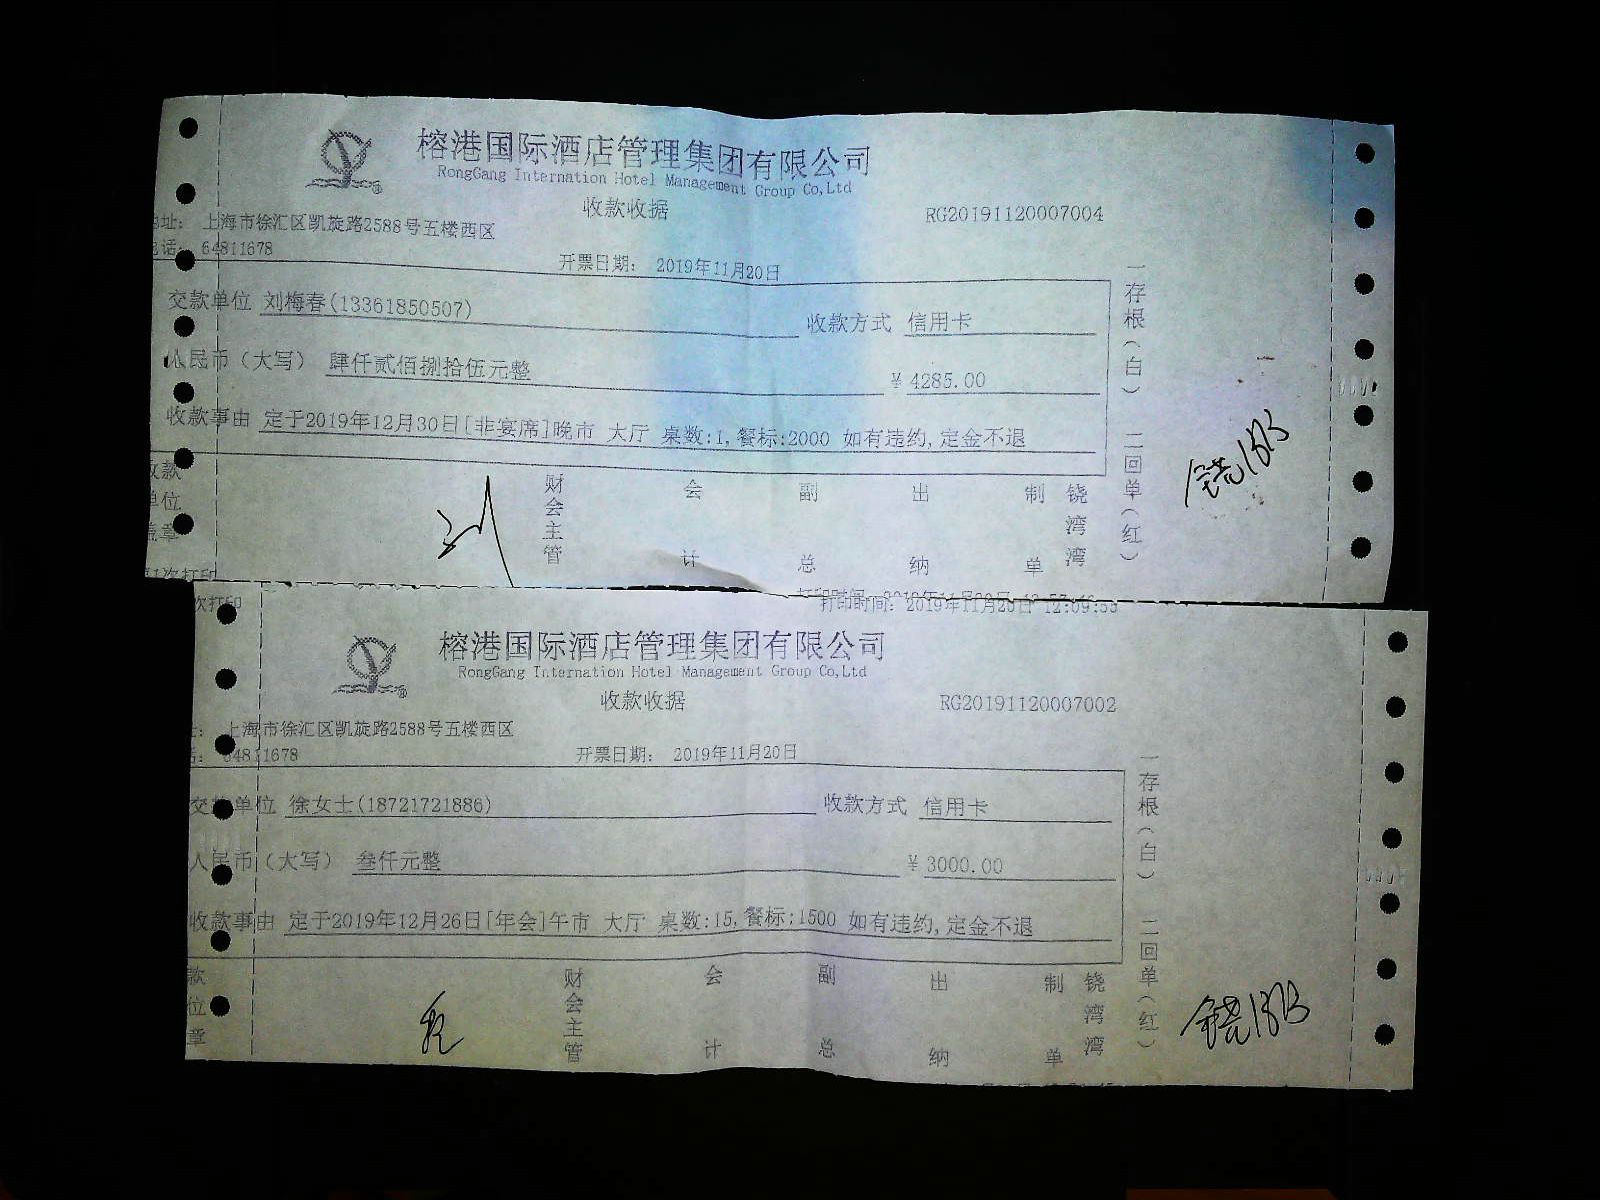 榕港国际酒店管理集团有限公司
RongGang Internation Hotel Management Group Co,Ltd
收款收据 RG20191120007004
地址: 上海市徐汇区凯旋路2588号五楼西区
电话: 64811678
开票日期: 2019年11月20日
交款单位 刘梅春(13361850507) 收款方式 信用卡
人民币(大写) 肆仟贰佰捌拾伍元整 ¥ 4285.00
收款事由 定于2019年12月30日[非宴席]晚市 大厅 桌数:1,餐标:2000 如有违约,定金不退
收款单位盖章 刘 财会主管 会计 副总 出纳 制单 饶湾湾
一存根(白) 二回单(红)
饶1873
次打印
打印时间: 2019年11月20日 12:09:53
次打印
榕港国际酒店管理集团有限公司
RongGang Internation Hotel Management Group Co,Ltd
收款收据 RG20191120007002
上海市徐汇区凯旋路2588号五楼西区
64811678
开票日期: 2019年11月20日
交款单位 徐女士(18721721886) 收款方式 信用卡
人民币(大写) 叁仟元整 ¥ 3000.00
收款事由 定于2019年12月26日[年会]午市 大厅 桌数:15,餐标:1500 如有违约,定金不退
款位章 财会主管 会计 副总 出纳 制单 饶湾湾
一存根(白) 二回单(红)
饶1873